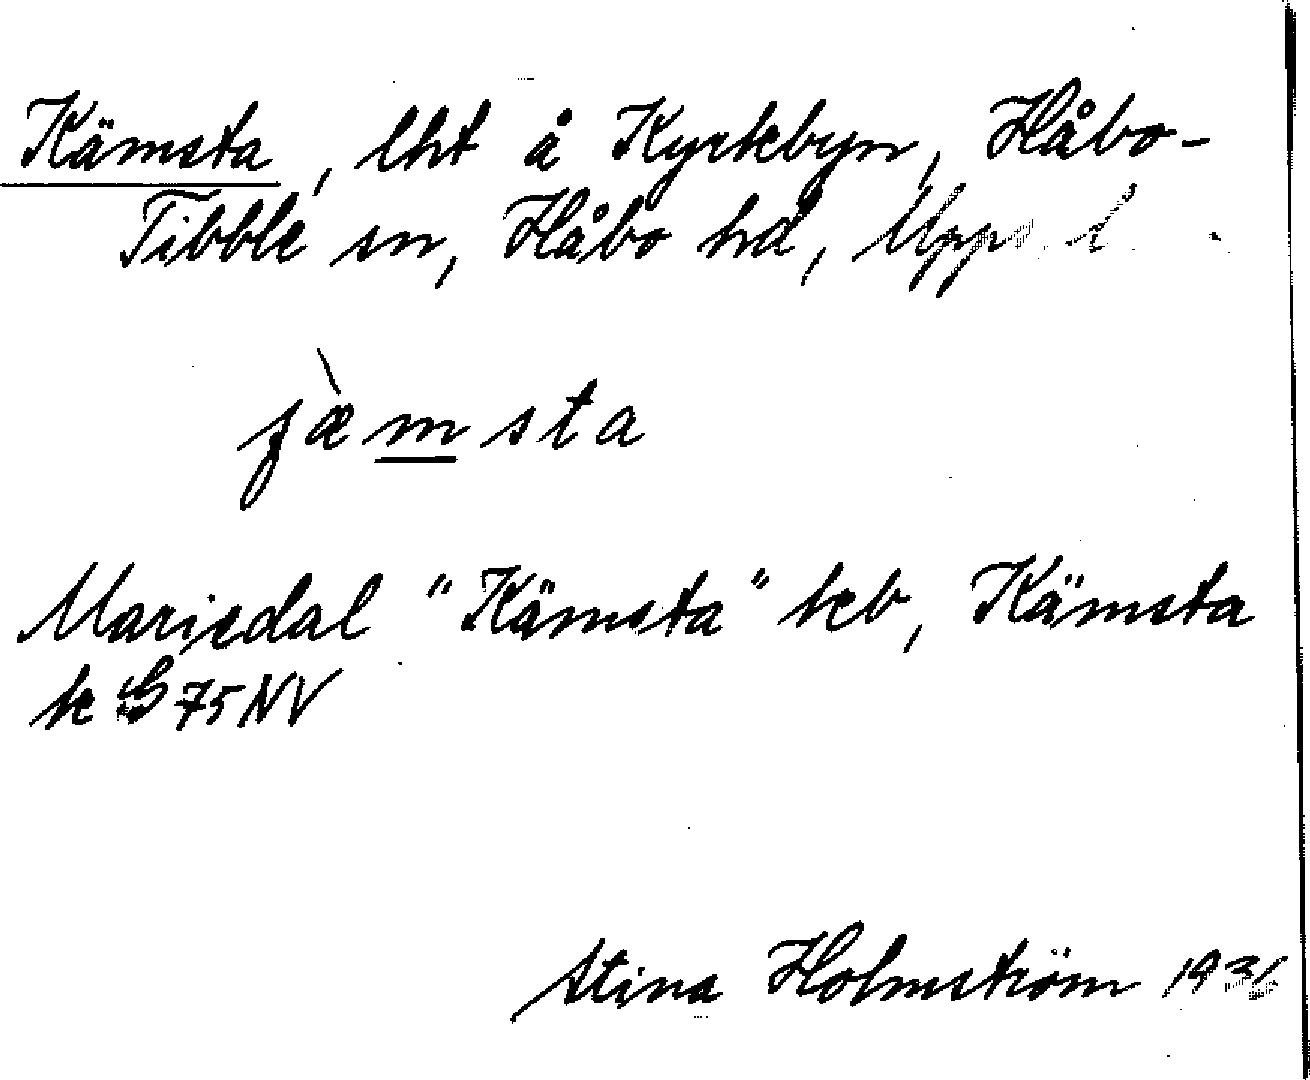 Kämsta, lht å Kyrkebyn, Håbo-
Tibble sn, Håbo hd, Upps. l
jæ̀msta
Mariedal "Kämsta" keb, Kämsta
k G 75 NV
Stina Holmström 1936